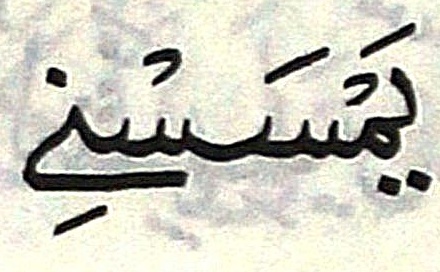 يَمْسَسْنِے